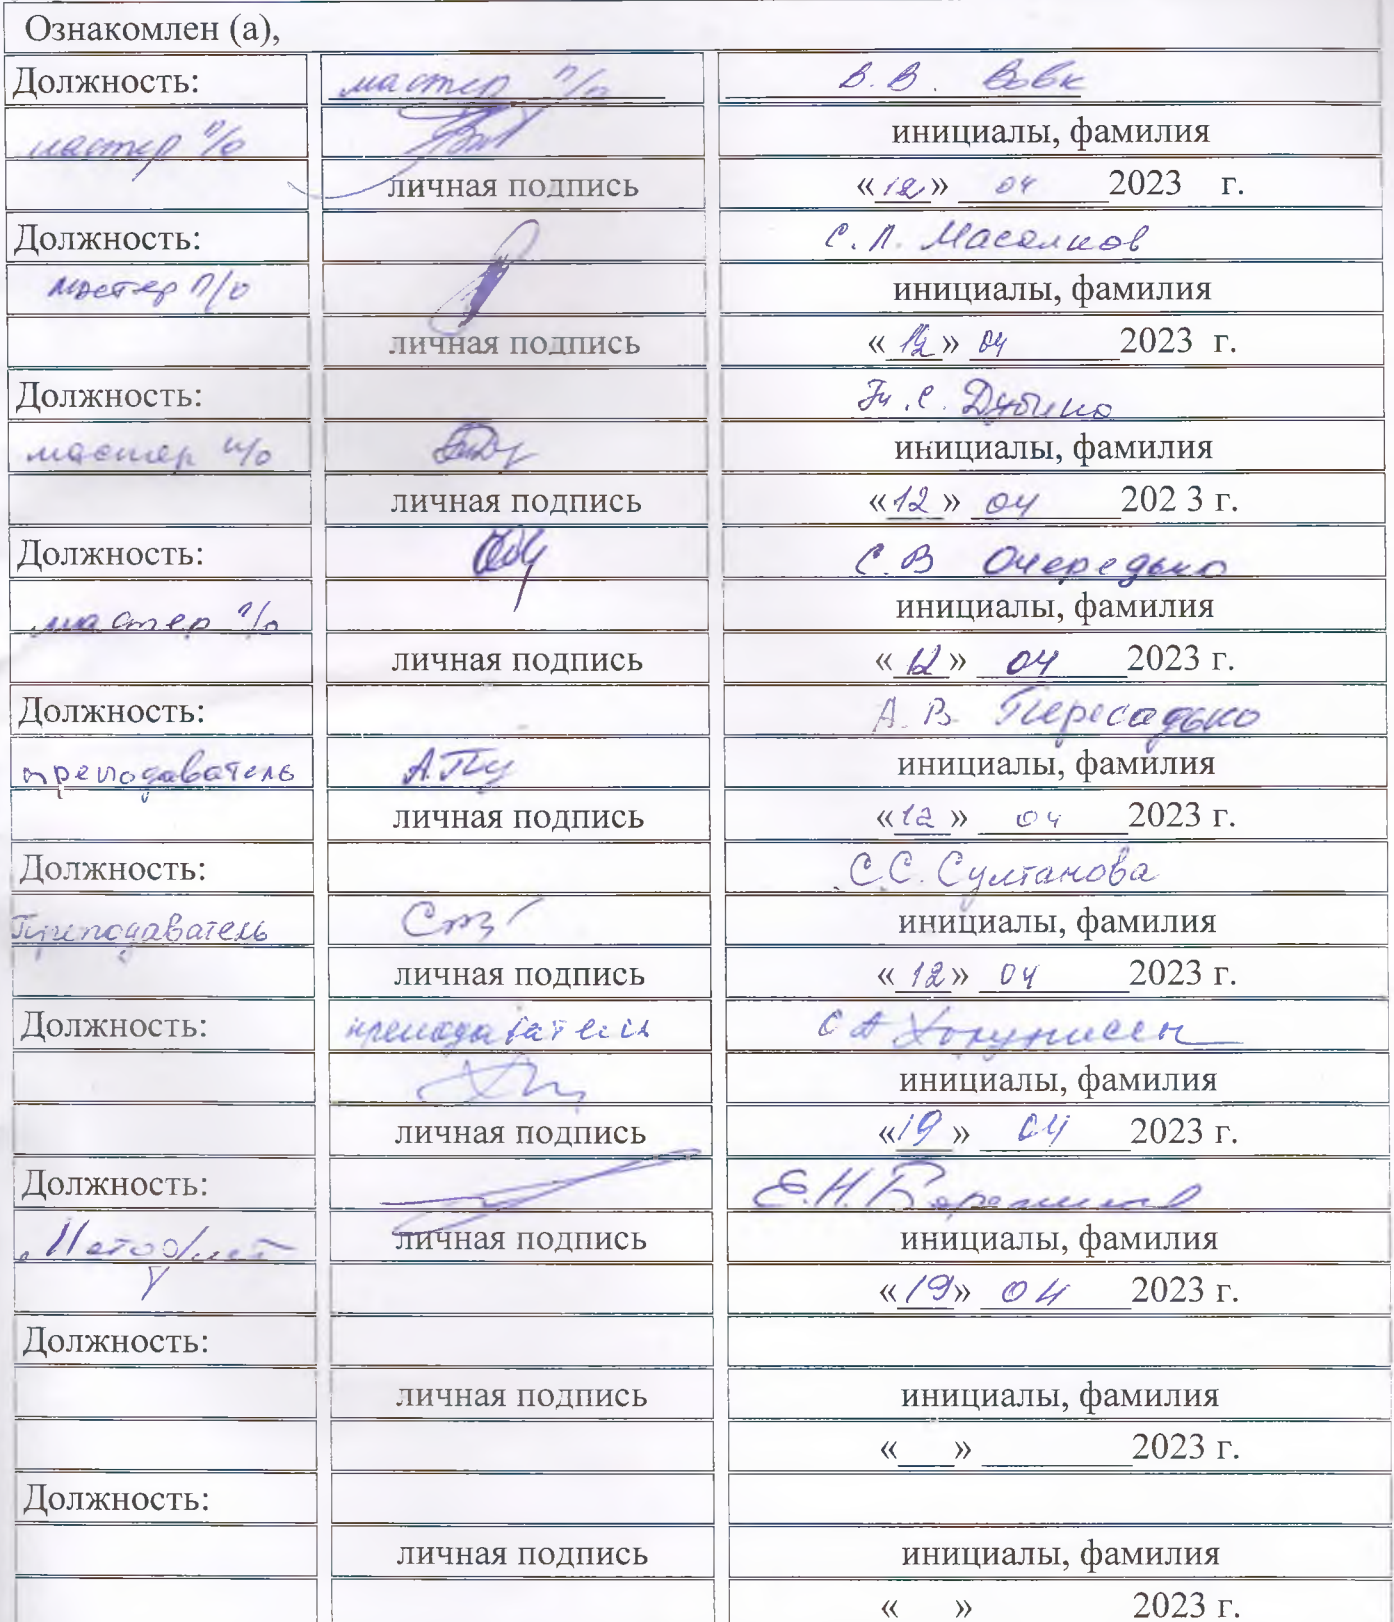 Ознакомлен (а),
Должность: мастер п/о В.В. Вовк
мастер п/о инициалы, фамилия
личная подпись «12» 04 2023 г.
Должность: С.Л.
мастер п/о инициалы, фамилия
личная подпись «12» 04 2023 г.
Должность: С.
мастер п/о инициалы, фамилия
личная подпись «12» 04 202 3 г.
Должность: С.В Очередько
мастер п/о инициалы, фамилия
личная подпись «12» 04 2023 г.
Должность: А.В. Пересадько
преподаватель инициалы, фамилия
личная подпись «12» 04 2023 г.
Должность: С.С. Султанова
Преподаватель инициалы, фамилия
личная подпись «12» 04 2023 г.
Должность: преподаватель
инициалы, фамилия
личная подпись «19» 04 2023 г.
Должность: Е.Н.
Методист личная подпись инициалы, фамилия
«19» 04 2023 г.
Должность:
личная подпись инициалы, фамилия
«___» ________ 2023 г.
Должность:
личная подпись инициалы, фамилия
« » 2023 г.